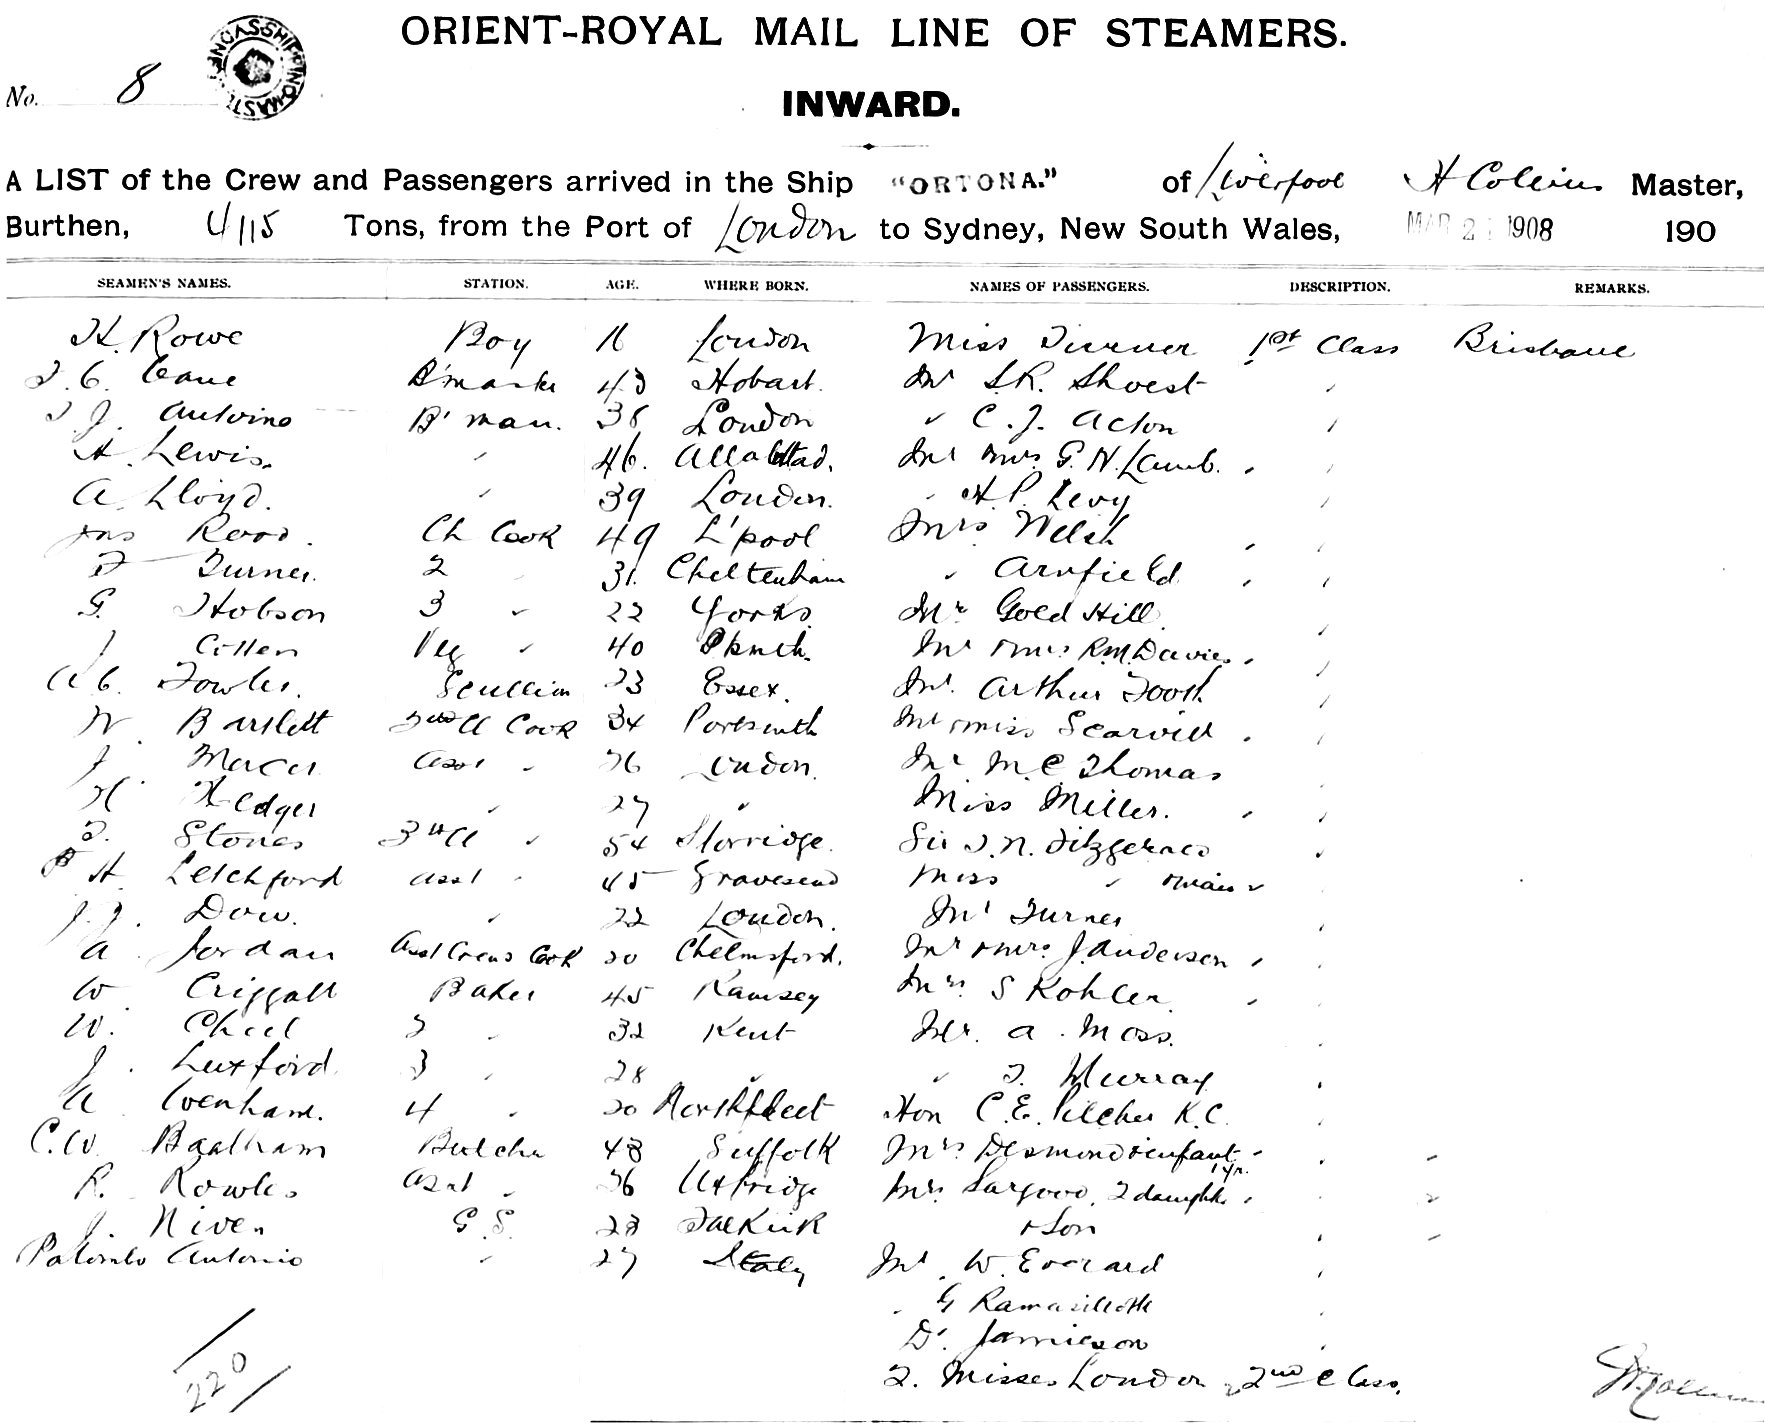 ORIENT-ROYAL MAIL LINE OF STEAMERS.
No. 8
INWARD.
A LIST of the Crew and Passengers arrived in the Ship "ORTONA." of Liverpool H Collins Master,
Burthen, 4115 Tons, from the Port of London to Sydney, New South Wales, MAR 2 1908 190
SEAMEN'S NAMES. STATION. AGE. WHERE BORN. NAMES OF PASSENGERS. DESCRIPTION. REMARKS.
H. Rowe Boy 16 London Miss Turner 1st Class Brisbane
Cane 43 Hobart. Mr S.R.
J. B'man. 38 London " C. J. Acton
H. Lewis. " 46. Mr & Mrs G. N. Lamb.
A. Lloyd. " 39 London. " H. P. Levy
Jas Rood. Ch Cook 49 L'pool Mrs Welsh
Turner. 2 " 31. Cheltenham " Arnfield
G. Hobson 3 " 22 Yorks. Mr Gold Hill.
J Veg " 40 Mr & Mrs R.M. Davies.
A C. Fowler. Scullion 23 Essex. Mr. Arthur Tooth
W. Bartlett 2nd Cl Cook 34 Portsmth Mr & Miss
J Mercer Asst " 26 London. Mr M. C Thomas
H. Hedger " 27 " Miss Miller.
Stones 3rd Cl " 54 Storridge. Sir J. N. Fitzgerald
H. Letchford Asst " 45 Gravesend Miss " & maid
J. J. Dow. " 22 London. Mr Turner
A Jordan Asst Crews Cook 20 Chelmsford. Mr & Mrs. J. Anderson
W Criggall Baker 45 Ramsey Mrs. S Kohler
W. Cheel 2 " 32 Kent Mr. A. Moss.
J. Luxford 3 " 28 " " Murray
A Wenham. 4 " 20 Northfleet Hon C. E. Pilcher K. C.
C. W. Baalham Butcher 48 Suffolk Mrs Desmond & infant 1 yr.
R. Rowles Asst " 26 Uxbridge Mrs Sargood, 2 daughts.
J. Niven G. S. 28 Falkirk & Son
Palombo Antonio " 27 Italy Mr. W. Everard
" G
Dr. Jamieson
2. Misses London 2nd Class.
220